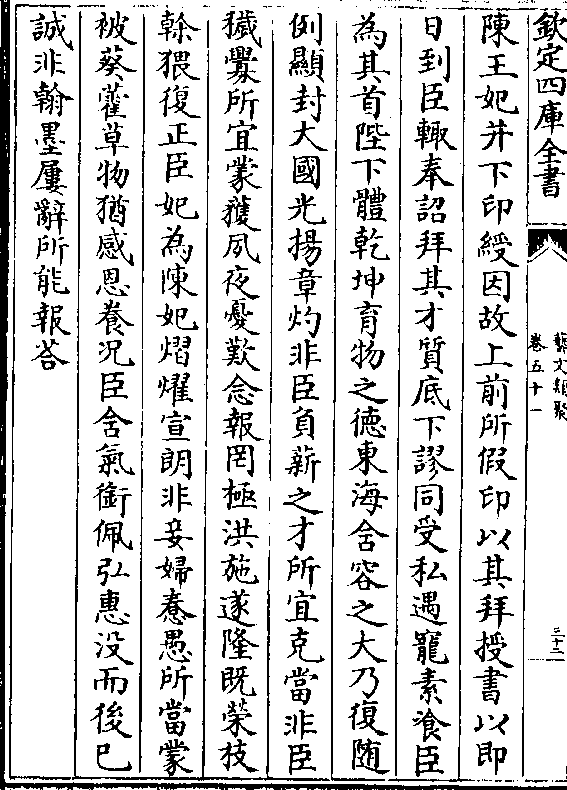 欽定四庫全書
藝文類聚
卷五十一
三十二
陳王妃并下印綬因故上前所假印以其拜授書以即
日到臣輙奉詔拜其才質底下謬同受私遇寵素飡臣
為其首陛下體乾坤育物之德東海含容之大乃復随
例顯封大國光揚章灼非臣負薪之才所宜克當非臣
穢釁所宜蒙獲夙夜憂歎念報罔極洪施遂隆既榮枝
榦猥復正臣妃為陳妃熠燿宣朗非妾婦惷愚所當蒙
被葵藿草物猶感恩養况臣含氣銜佩弘惠没而後已
誠非翰墨屢辭所能報荅